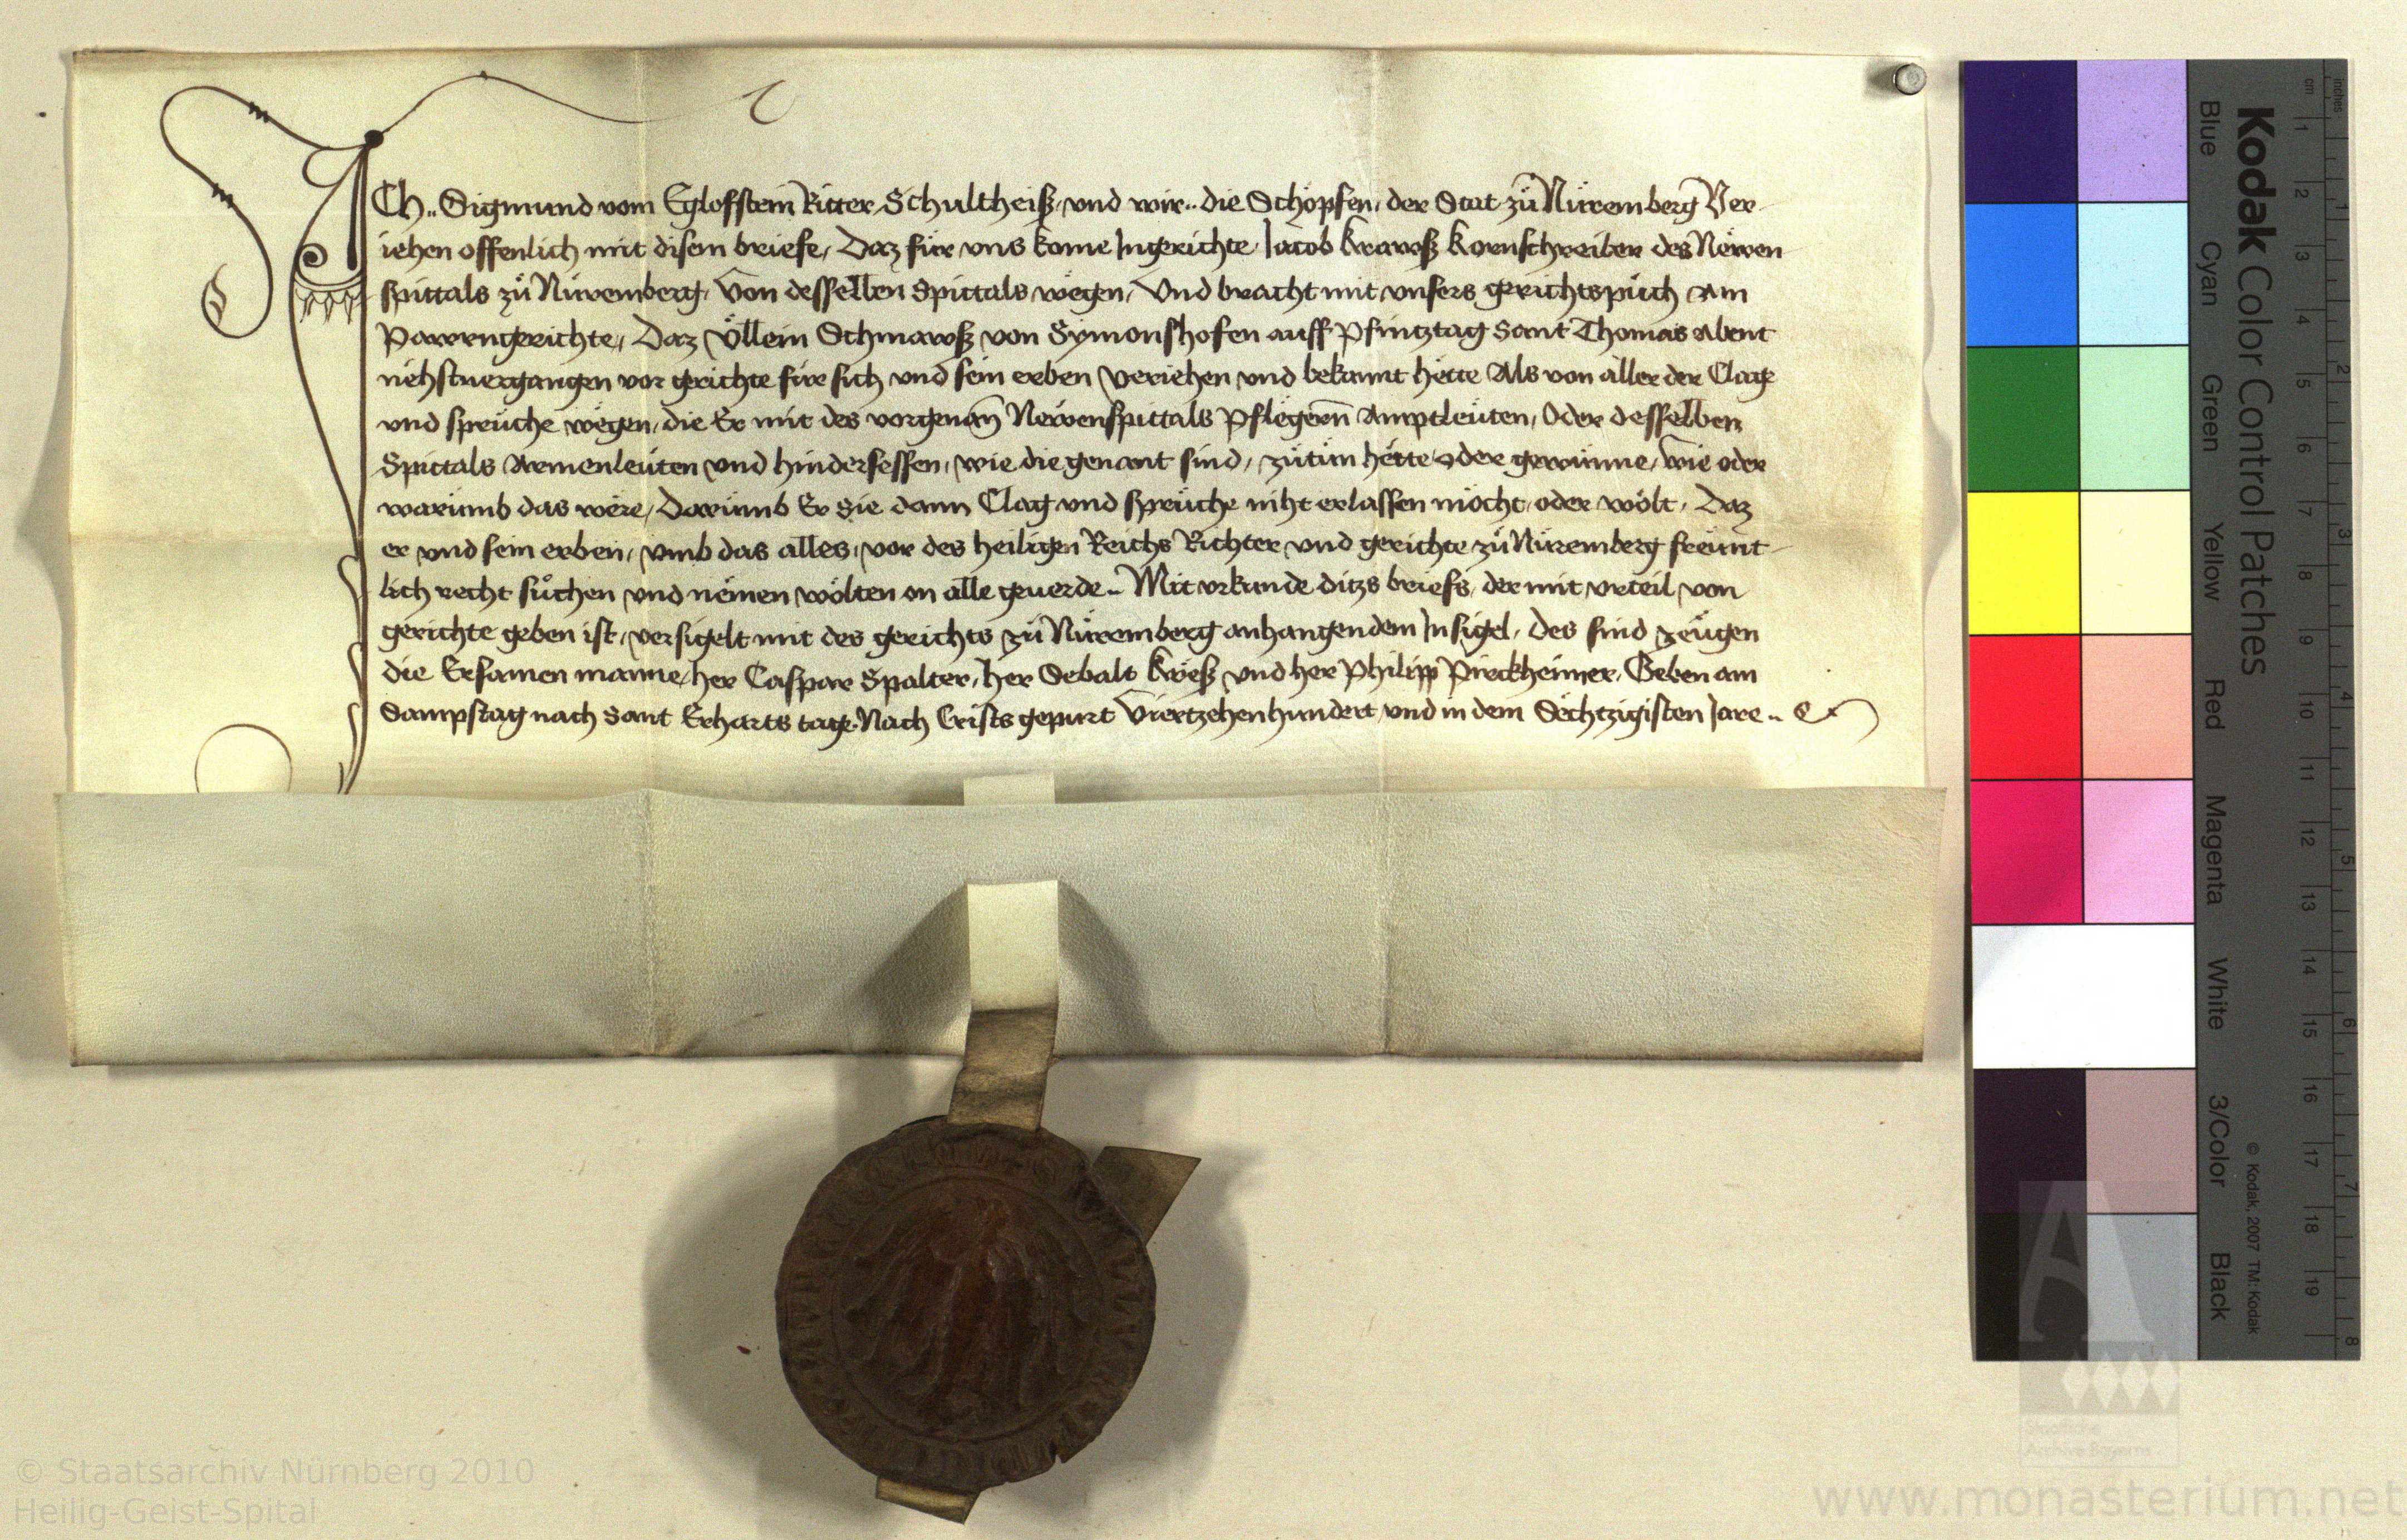 ICh.. Sigmund vom Eglofstein Ritter Schultheiß, vnd wir.. die Schöpfen, der Stat zů Nüremberg Ver-
iehen offenlich mit disem briefe, Daz für vns kome Ingerichte, Jacob Krawß kornschreiber des Newen
spittals zů Nüremberg, Von desselben Spittals wegen, Vnd bracht mit vnsers gerichtspůch Am
Pawrngerichte, Daz Völlein Schmawß von Symonshofen auff Pfintztag Sant Thomas Abent
nehstuergangen vor gerichte für sich vnd sein erben Veriehen vnd bekannt hette Als von aller der Clag
vnd sprüche wegen, die Er mit des vorgenan̄ Newenspittals Pflegern̄ Amptleüten, Oder desselben
Spittals Armenleüten vnd hindersessen, wie die genant sind, zůtůn hette oder gewünne, wie oder
warumb das were, Darumb Er Sie dann Clag vnd sprüche niht erlassen möcht, oder wölt, Daz
er vnd sein erben, vmb das alles, vor des heiligen Reichs Richter vnd gerichte zů Nüremberg freünt-
lich recht sůchen vnd nemen wölten on alle geuerde.. Mit vrkunde ditzs briefs, der mit vrteil von
gerichte geben ist, versigelt mit des gerichts zů Nüremberg anhangendem Insigel, Des sind zeügen
die Ersamen manne, her Caspar Spalter, her Sebalt Kreß vnd her Philipp Pirckheimer, Geben am
Sampstag nach Sant Erharts tage. Nach Crists gepurt Viertzehenhundert vnd in dem Sechtzigisten Jare..
Kodak Color Control Patches
Blue Cyan Green Yellow Red Magenta White 3/Color Black
© Kodak, 2007 TM: Kodak
cm 1 2 3 4 5 6 7 8 9 10 11 12 13 14 15 16 17 18 19
inches 1 2 3 4 5 6 7 8
© Staatsarchiv Nürnberg 2010
Heilig-Geist-Spital
www.monasterium.net